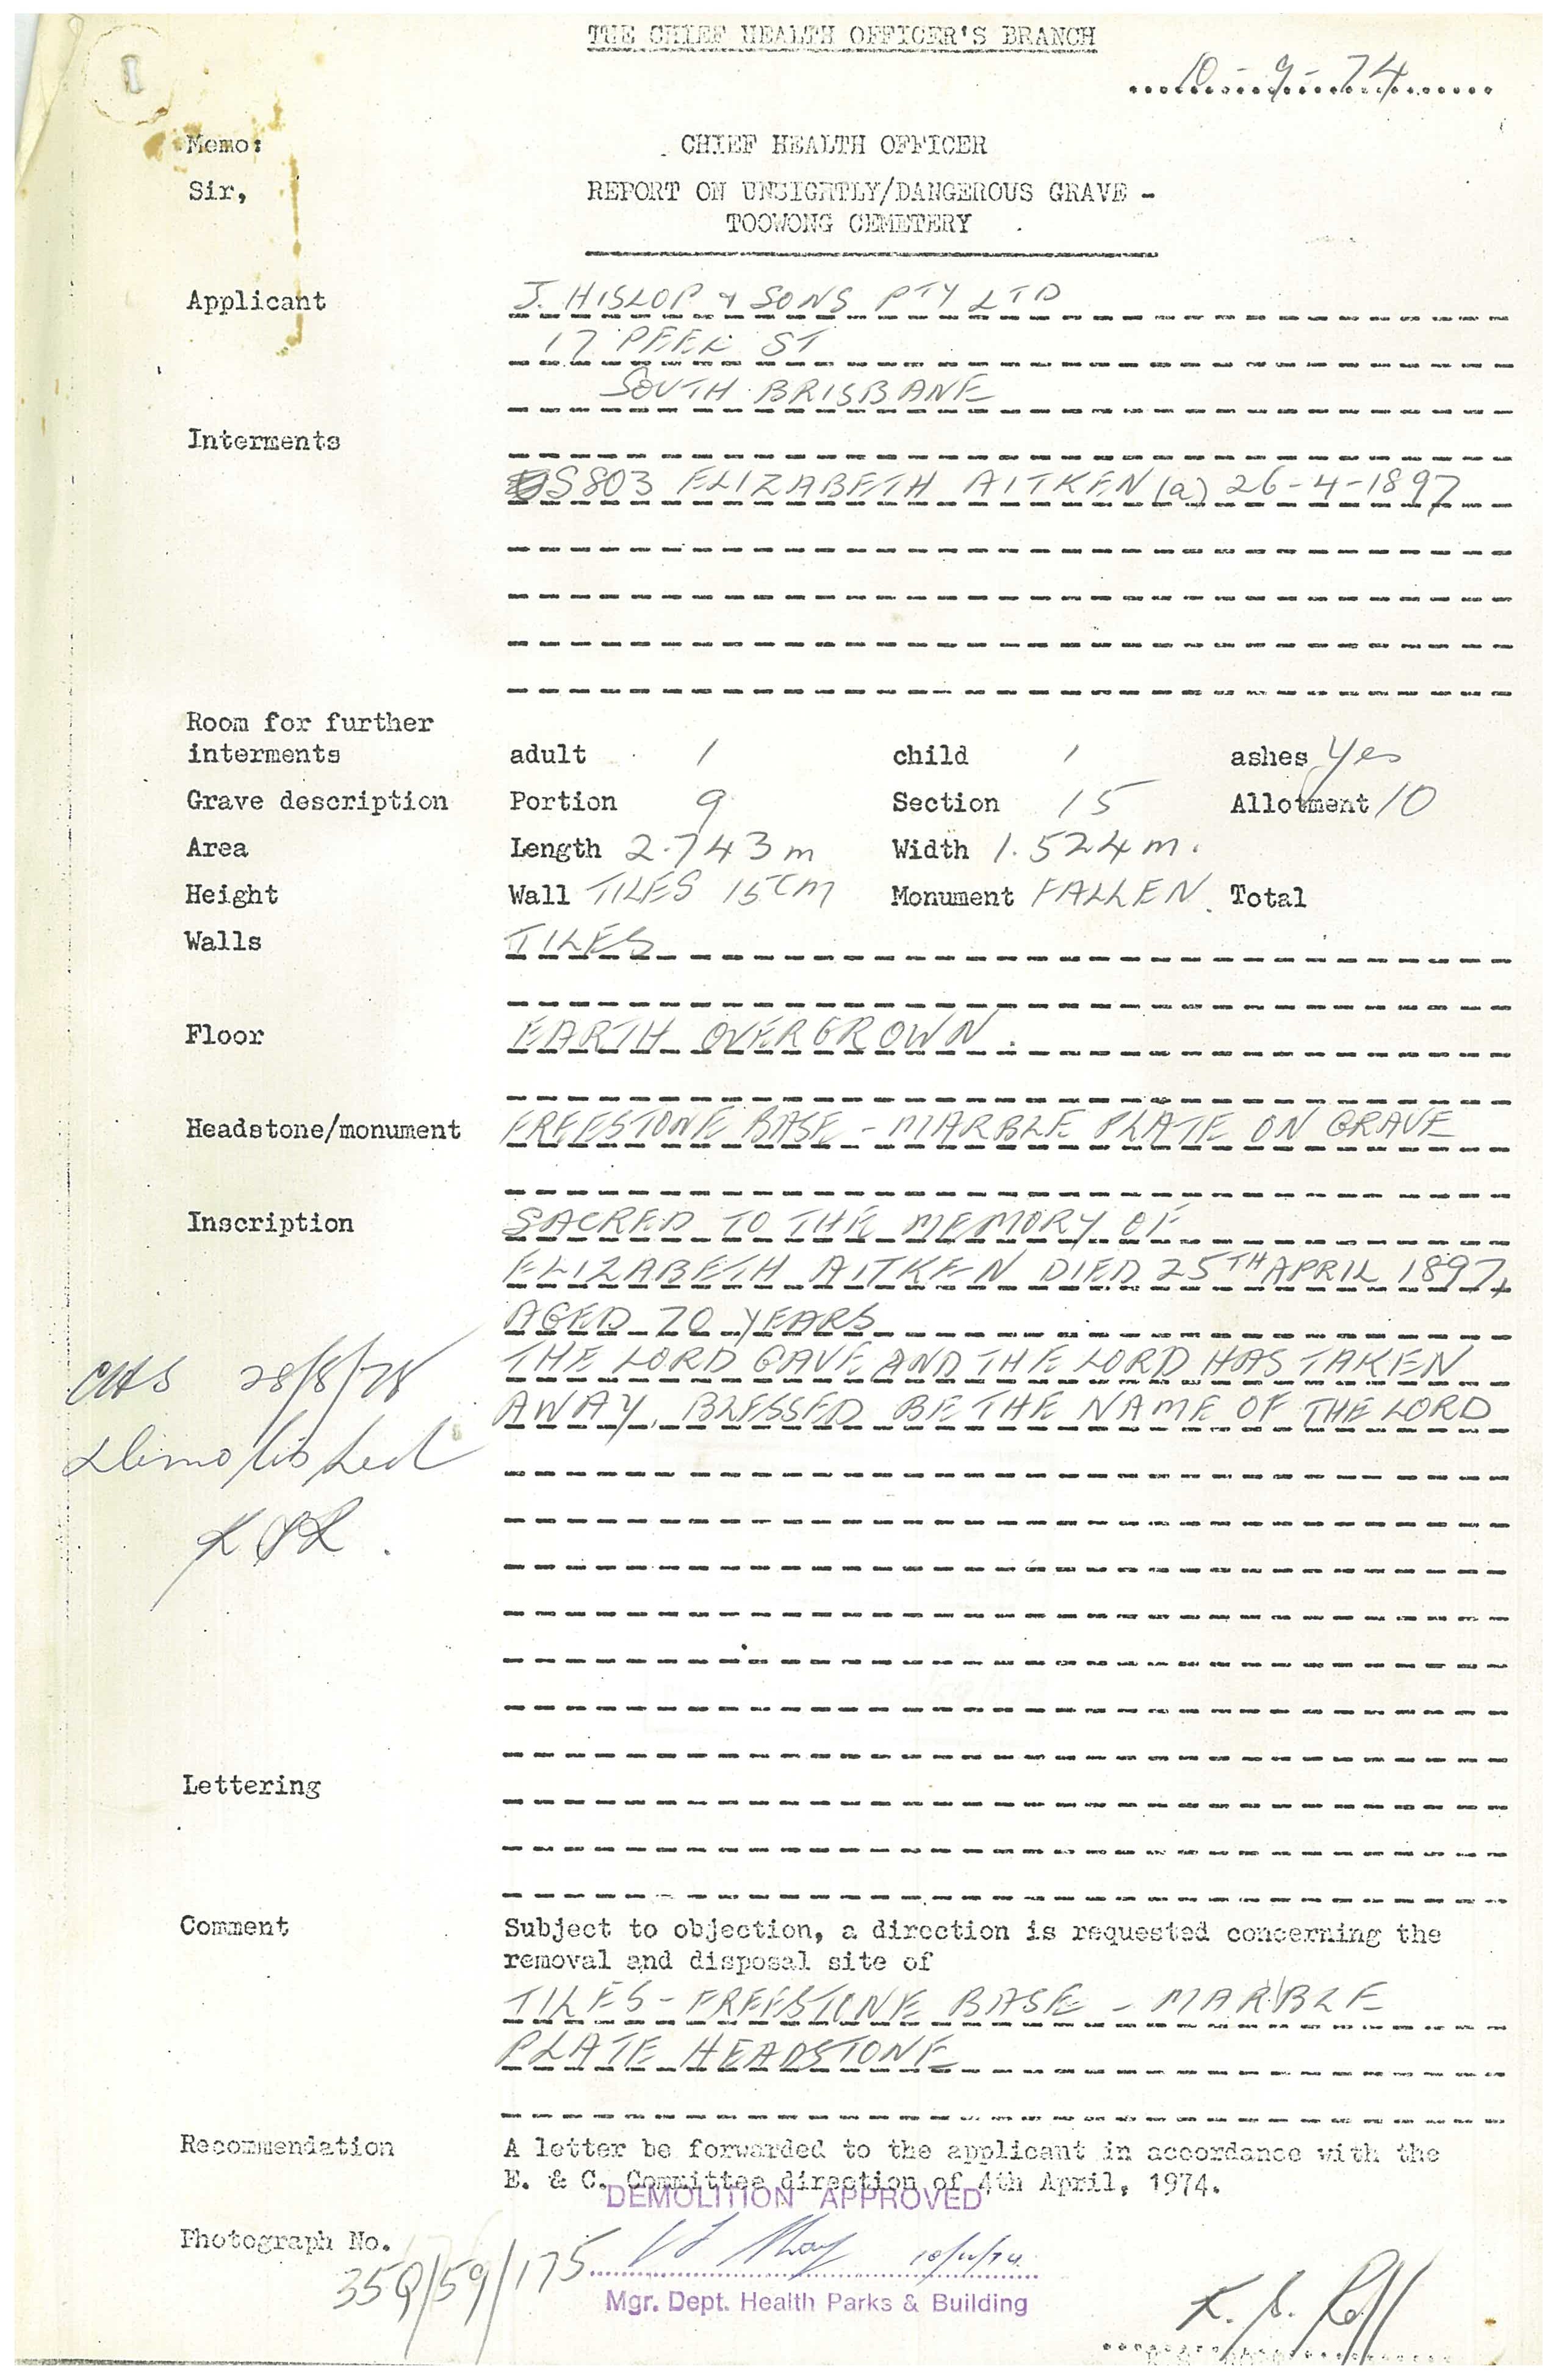 THE CHIEF HEALTH OFFICER'S BRANCH
10-9-74
Memo: CHIEF HEALTH OFFICER
Sir, REPORT ON UNSIGHTLY/DANGEROUS GRAVE -
TOOWONG CEMETERY
Applicant J. HISLOP & SONS PTY LTD
17 PEEL ST
SOUTH BRISBANE
Interments
S803 ELIZABETH AITKEN (a) 26-4-1897
Room for further
interments adult 1 child 1 ashes Yes
Grave description Portion 9 Section 15 Allotment 10
Area Length 2.743m Width 1.524m.
Height Wall TILES 15cm Monument FALLEN Total
Walls TILES
Floor EARTH OVERGROWN.
Headstone/monument FREESTONE BASE - MARBLE PLATE ON GRAVE
Inscription SACRED TO THE MEMORY OF
ELIZABETH AITKEN DIED 25TH APRIL 1897,
AGED 70 YEARS
THE LORD GAVE AND THE LORD HAS TAKEN
AWAY, BLESSED BE THE NAME OF THE LORD
28/8/78
Demolished
Lettering
Comment Subject to objection, a direction is requested concerning the
removal and disposal site of
TILES - FREESTONE BASE - MARBLE
PLATE HEADSTONE
Recommendation A letter be forwarded to the applicant in accordance with the
E. & C. Committee direction of 4th April, 1974.
DEMOLITION APPROVED
Photograph No.
35Q/59/175
Mgr. Dept. Health Parks & Building